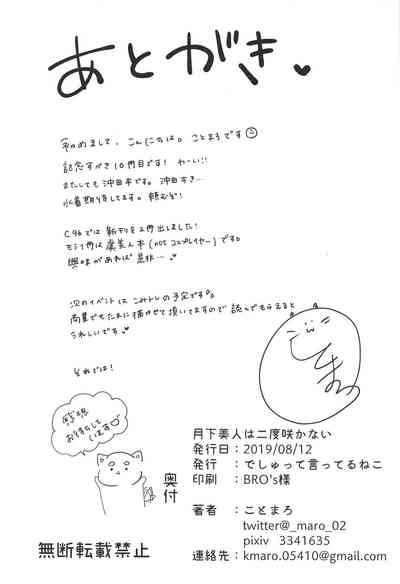 あとがき
初めまして、こんにちは。ことまろです
記念すべき10冊目です！わーい!!
またしても沖田本です。沖田すき…
水着期待してます。頼むぞ！
C96では新刊を2冊出しました！
もう1冊は虞美人本(notコスプレイヤー)です。
興味があれば是非…
次のイベントはこみトレの予定です。
商業でもたまに描かせて頂いてますので読んでもらえると
うれしいです
それでは！
ことまろ
感想
お待ちして
います
奥付
無断転載禁止
月下美人は二度咲かない
発行日：2019/08/12
発行　：でしゅって言ってるねこ
印刷　：BRO's様
著者　：ことまろ
twitter@_maro_02
pixiv　3341635
連絡先：kmaro.05410@gmail.com